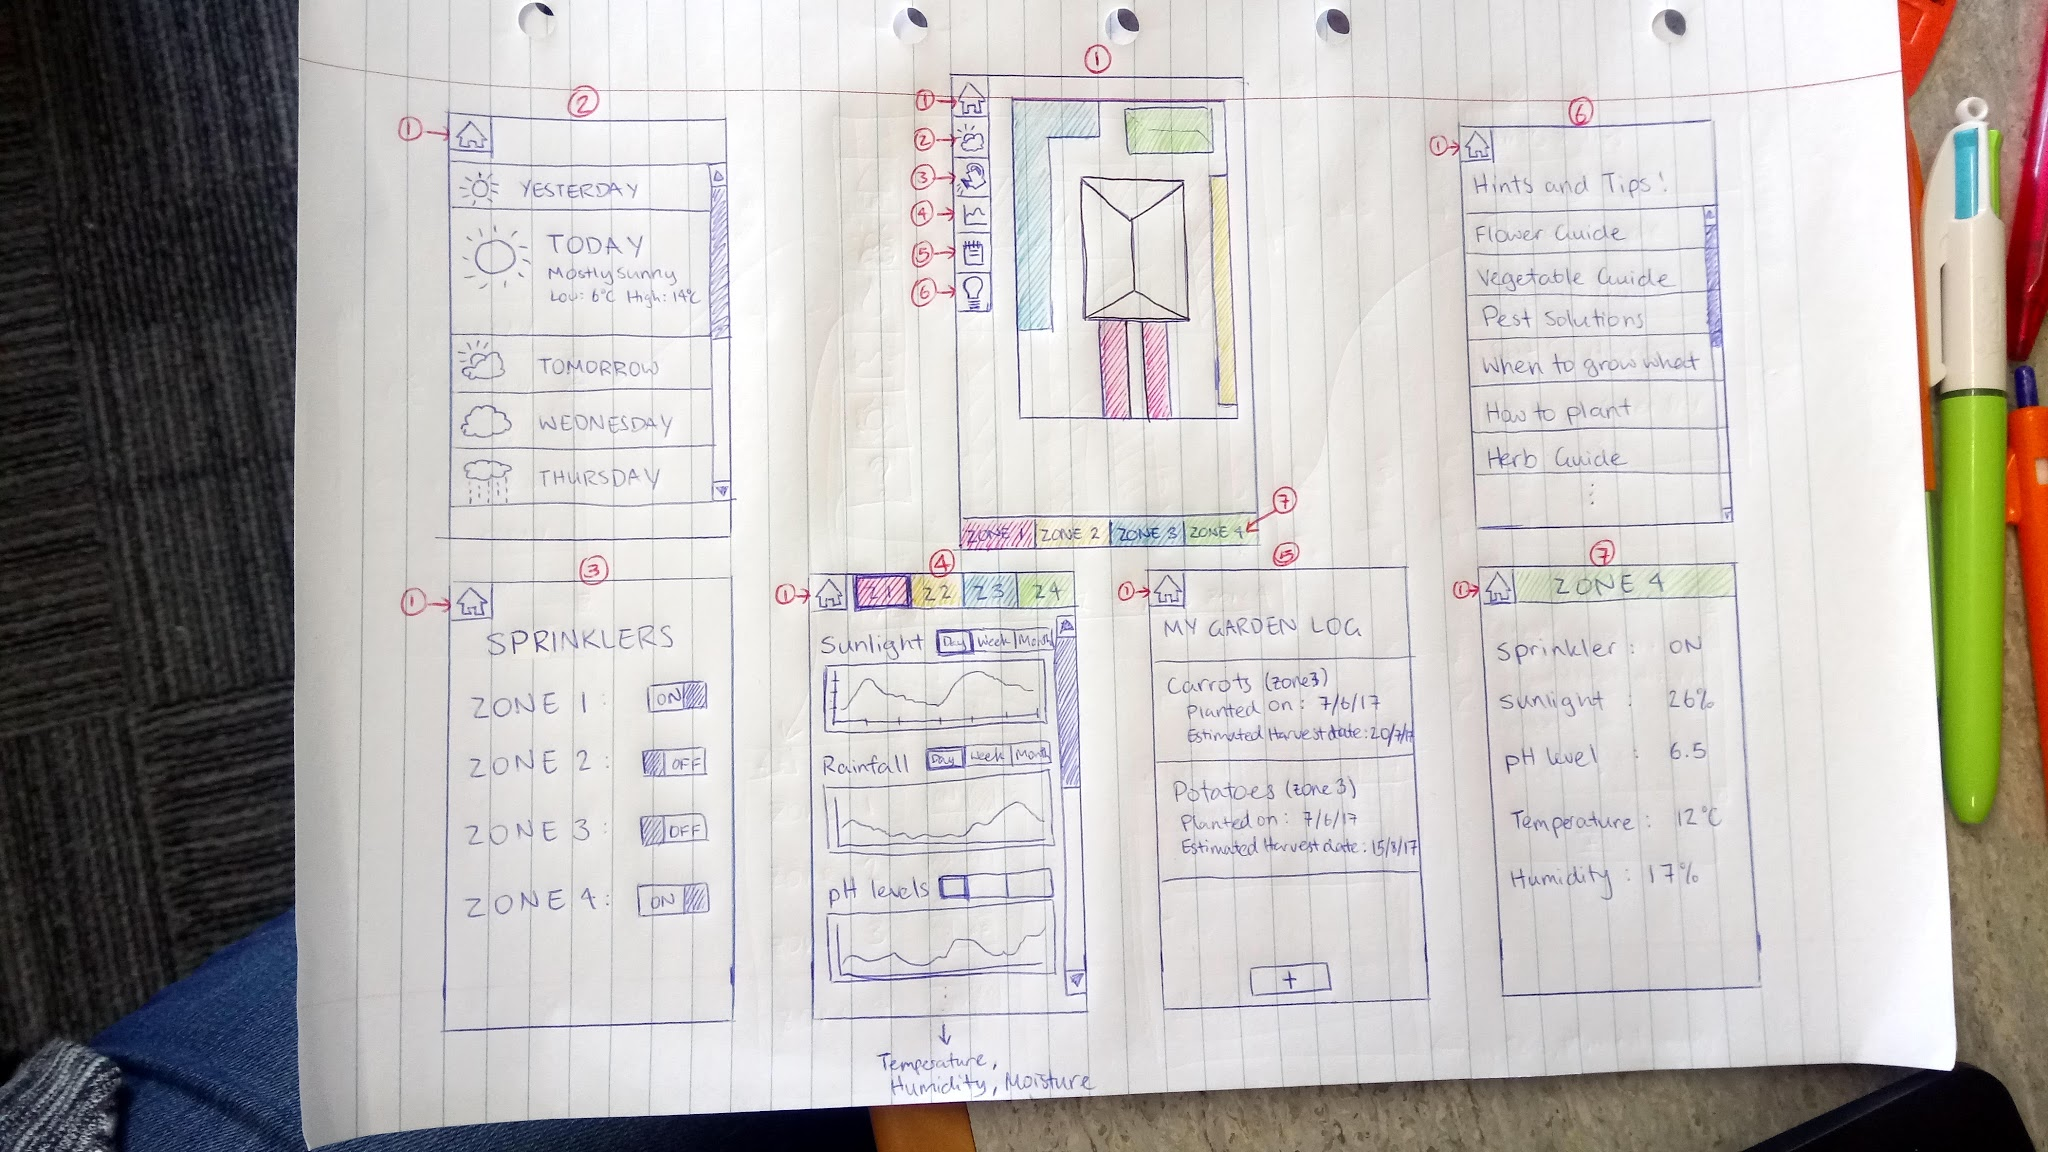 2
1
YESTERDAY
TODAY
Mostly sunny
Low: 6°C High: 14°C
TOMORROW
WEDNESDAY
THURSDAY
1
1
2
3
4
5
6
7
ZONE 1 ZONE 2 ZONE 3 ZONE 4
6
1
Hints and Tips!
Flower Guide
Vegetable Guide
Pest Solutions
When to grow what
How to plant
Herb Guide
3
1
SPRINKLERS
ZONE 1: ON
ZONE 2: OFF
ZONE 3: OFF
ZONE 4: ON
4
1
Z1 Z2 Z3 Z4
Sunlight Day Week Month
Rainfall Day Week Month
pH levels
Temperature,
Humidity, Moisture
5
1
MY GARDEN LOG
Carrots (zone3)
Planted on: 7/6/17
Estimated Harvest date: 20/7/17
Potatoes (zone 3)
Planted on: 7/6/17
Estimated Harvest date: 15/8/17
+
7
1
ZONE 4
Sprinkler: ON
Sunlight: 26%
pH level: 6.5
Temperature: 12°C
Humidity: 17%